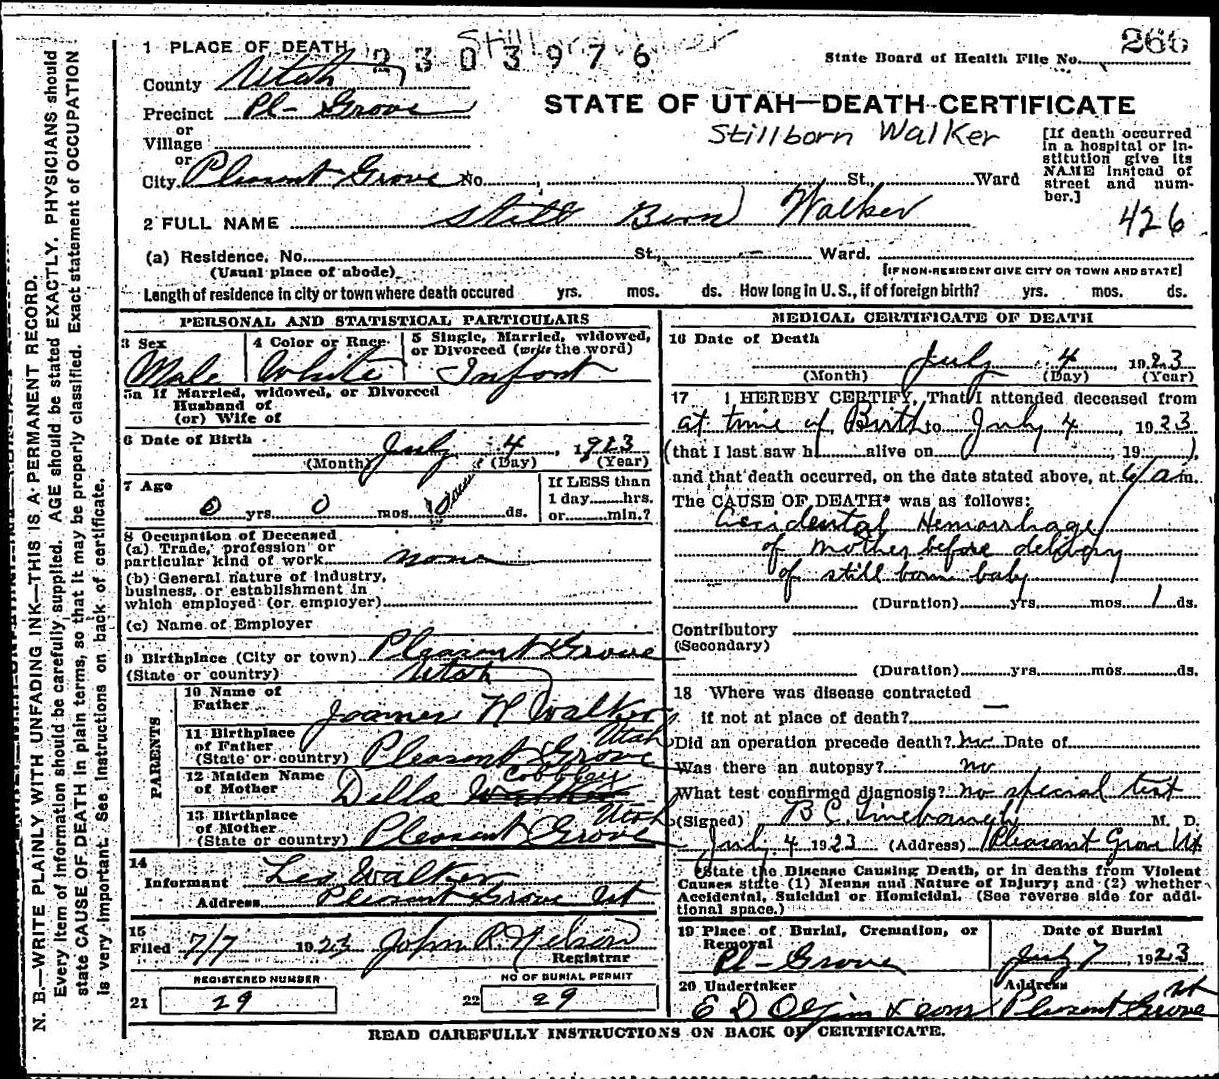 266
Stillborn Walker
1 PLACE OF DEATH 2303976
State Board of Health File No.
County Utah
Precinct Pl- Grove
STATE OF UTAH—DEATH CERTIFICATE
or
Village
Stillborn Walker
or
City Pleasant Grove No. , St., Ward
[If death occurred in a hospital or institution give its NAME instead of street and number.]
426
2 FULL NAME Still Born Walker
(a) Residence, No. St., Ward.
(Usual place of abode)
[IF NON-RESIDENT GIVE CITY OR TOWN AND STATE]
Length of residence in city or town where death occured yrs. mos. ds. How long in U.S., if of foreign birth? yrs. mos. ds.
PERSONAL AND STATISTICAL PARTICULARS
3 Sex 4 Color or Race 5 Single, Married, widowed,
or Divorced (write the word)
Male White Infant
5a If Married, widowed, or Divorced
Husband of
(or) Wife of
6 Date of Birth July 4, 1923
(Month) (Day) (Year)
7 Age
0 yrs. 0 mos. 0 ds.
If LESS than
1 day hrs.
or min.?
8 Occupation of Deceased
(a) Trade, profession or
particular kind of work none
(b) General nature of industry,
business, or establishment in
which employed (or employer)
(c) Name of Employer
9 Birthplace (City or town) Pleasant Grove
(State or country) Utah
PARENTS
10 Name of
Father H Walker
11 Birthplace
of Father Utah
(State or country) Pleasant Grove
12 Maiden Name Cobbley
of Mother Della
13 Birthplace
of Mother Utah
(State or country) Pleasant Grove
14
Informant Les Walker
Address Pleasant Grove Ut
15
Filed 7/7 1923 John P. Nelson
Registrar
REGISTERED NUMBER NO OF BURIAL PERMIT
21 29 22 29
MEDICAL CERTIFICATE OF DEATH
16 Date of Death
July 4 1923
(Month) (Day) (Year)
17 I HEREBY CERTIFY, That I attended deceased from
at time of Birth to July 4, 1923
(that I last saw h alive on , 19 ),
and that death occurred, on the date stated above, at 6/a m.
The CAUSE OF DEATH* was as follows:
Accidental Hemorrhage
of mother before delivery
of still born baby
(Duration) yrs. mos. 1 ds.
Contributory
(Secondary)
(Duration) yrs. mos. ds.
18 Where was disease contracted
if not at place of death? —
Did an operation precede death? no Date of
Was there an autopsy? no
What test confirmed diagnosis? no special test
(Signed) B C Linebaugh M. D.
July 4 1923 (Address) Pleasant Grove Ut
*State the Disease Causing Death, or in deaths from Violent
Causes state (1) Means and Nature of Injury; and (2) whether
Accidental, Suicidal or Homicidal. (See reverse side for addi-
tional space.)
19 Place of Burial, Cremation, or
Removal
Date of Burial
Pl- Grove July 7, 1923
20 Undertaker Address
E D Olpin & sons Pleasant Grove Ut
READ CAREFULLY INSTRUCTIONS ON BACK OF CERTIFICATE.
N. B.—WRITE PLAINLY WITH UNFADING INK—THIS IS A PERMANENT RECORD.
Every item of information should be carefully supplied. AGE should be stated EXACTLY. PHYSICIANS should
state CAUSE OF DEATH in plain terms, so that it may be properly classified. Exact statement of OCCUPATION
is very important. See instructions on back of certificate.